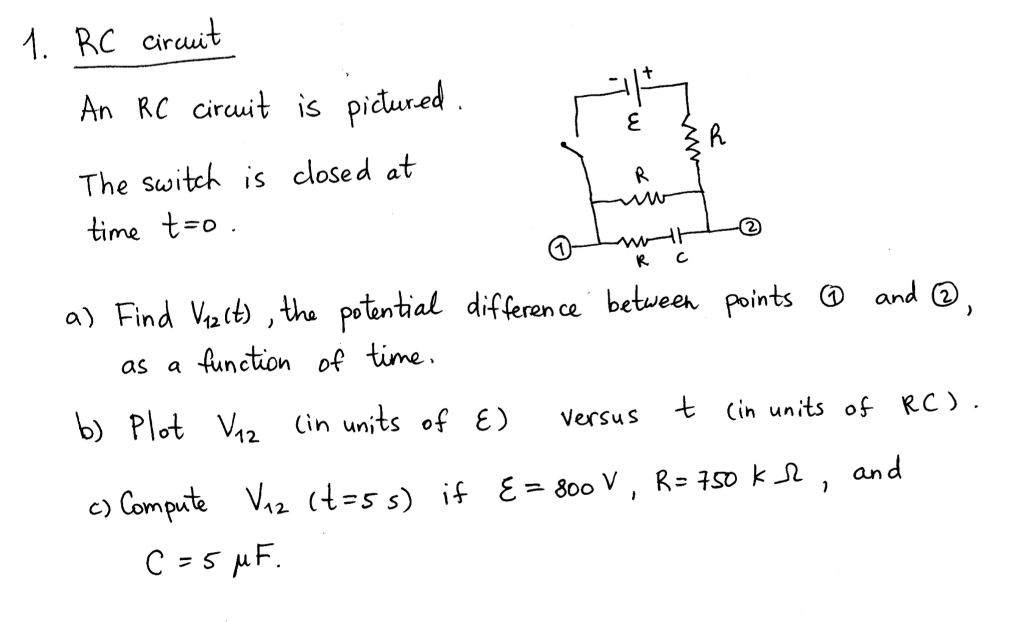 1. RC circuit
An RC circuit is pictured.
The switch is closed at
time t=0.
- +
ε
R
R
① ②
R C
a) Find V₁₂(t), the potential difference between points ① and ②,
as a function of time.
b) Plot V₁₂ (in units of ε) versus t (in units of RC).
c) Compute V₁₂ (t=5 s) if ε = 800 V, R = 750 kΩ, and
C = 5 μF.